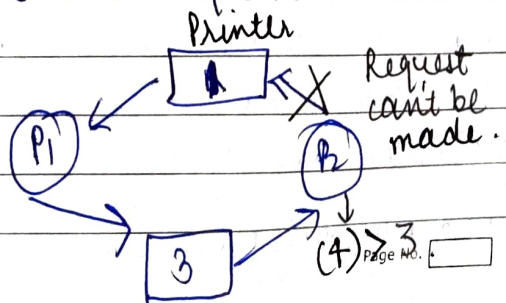 Printer
1
Request
can't be
made.
P1
P2
3
(4) > 3
Page No.